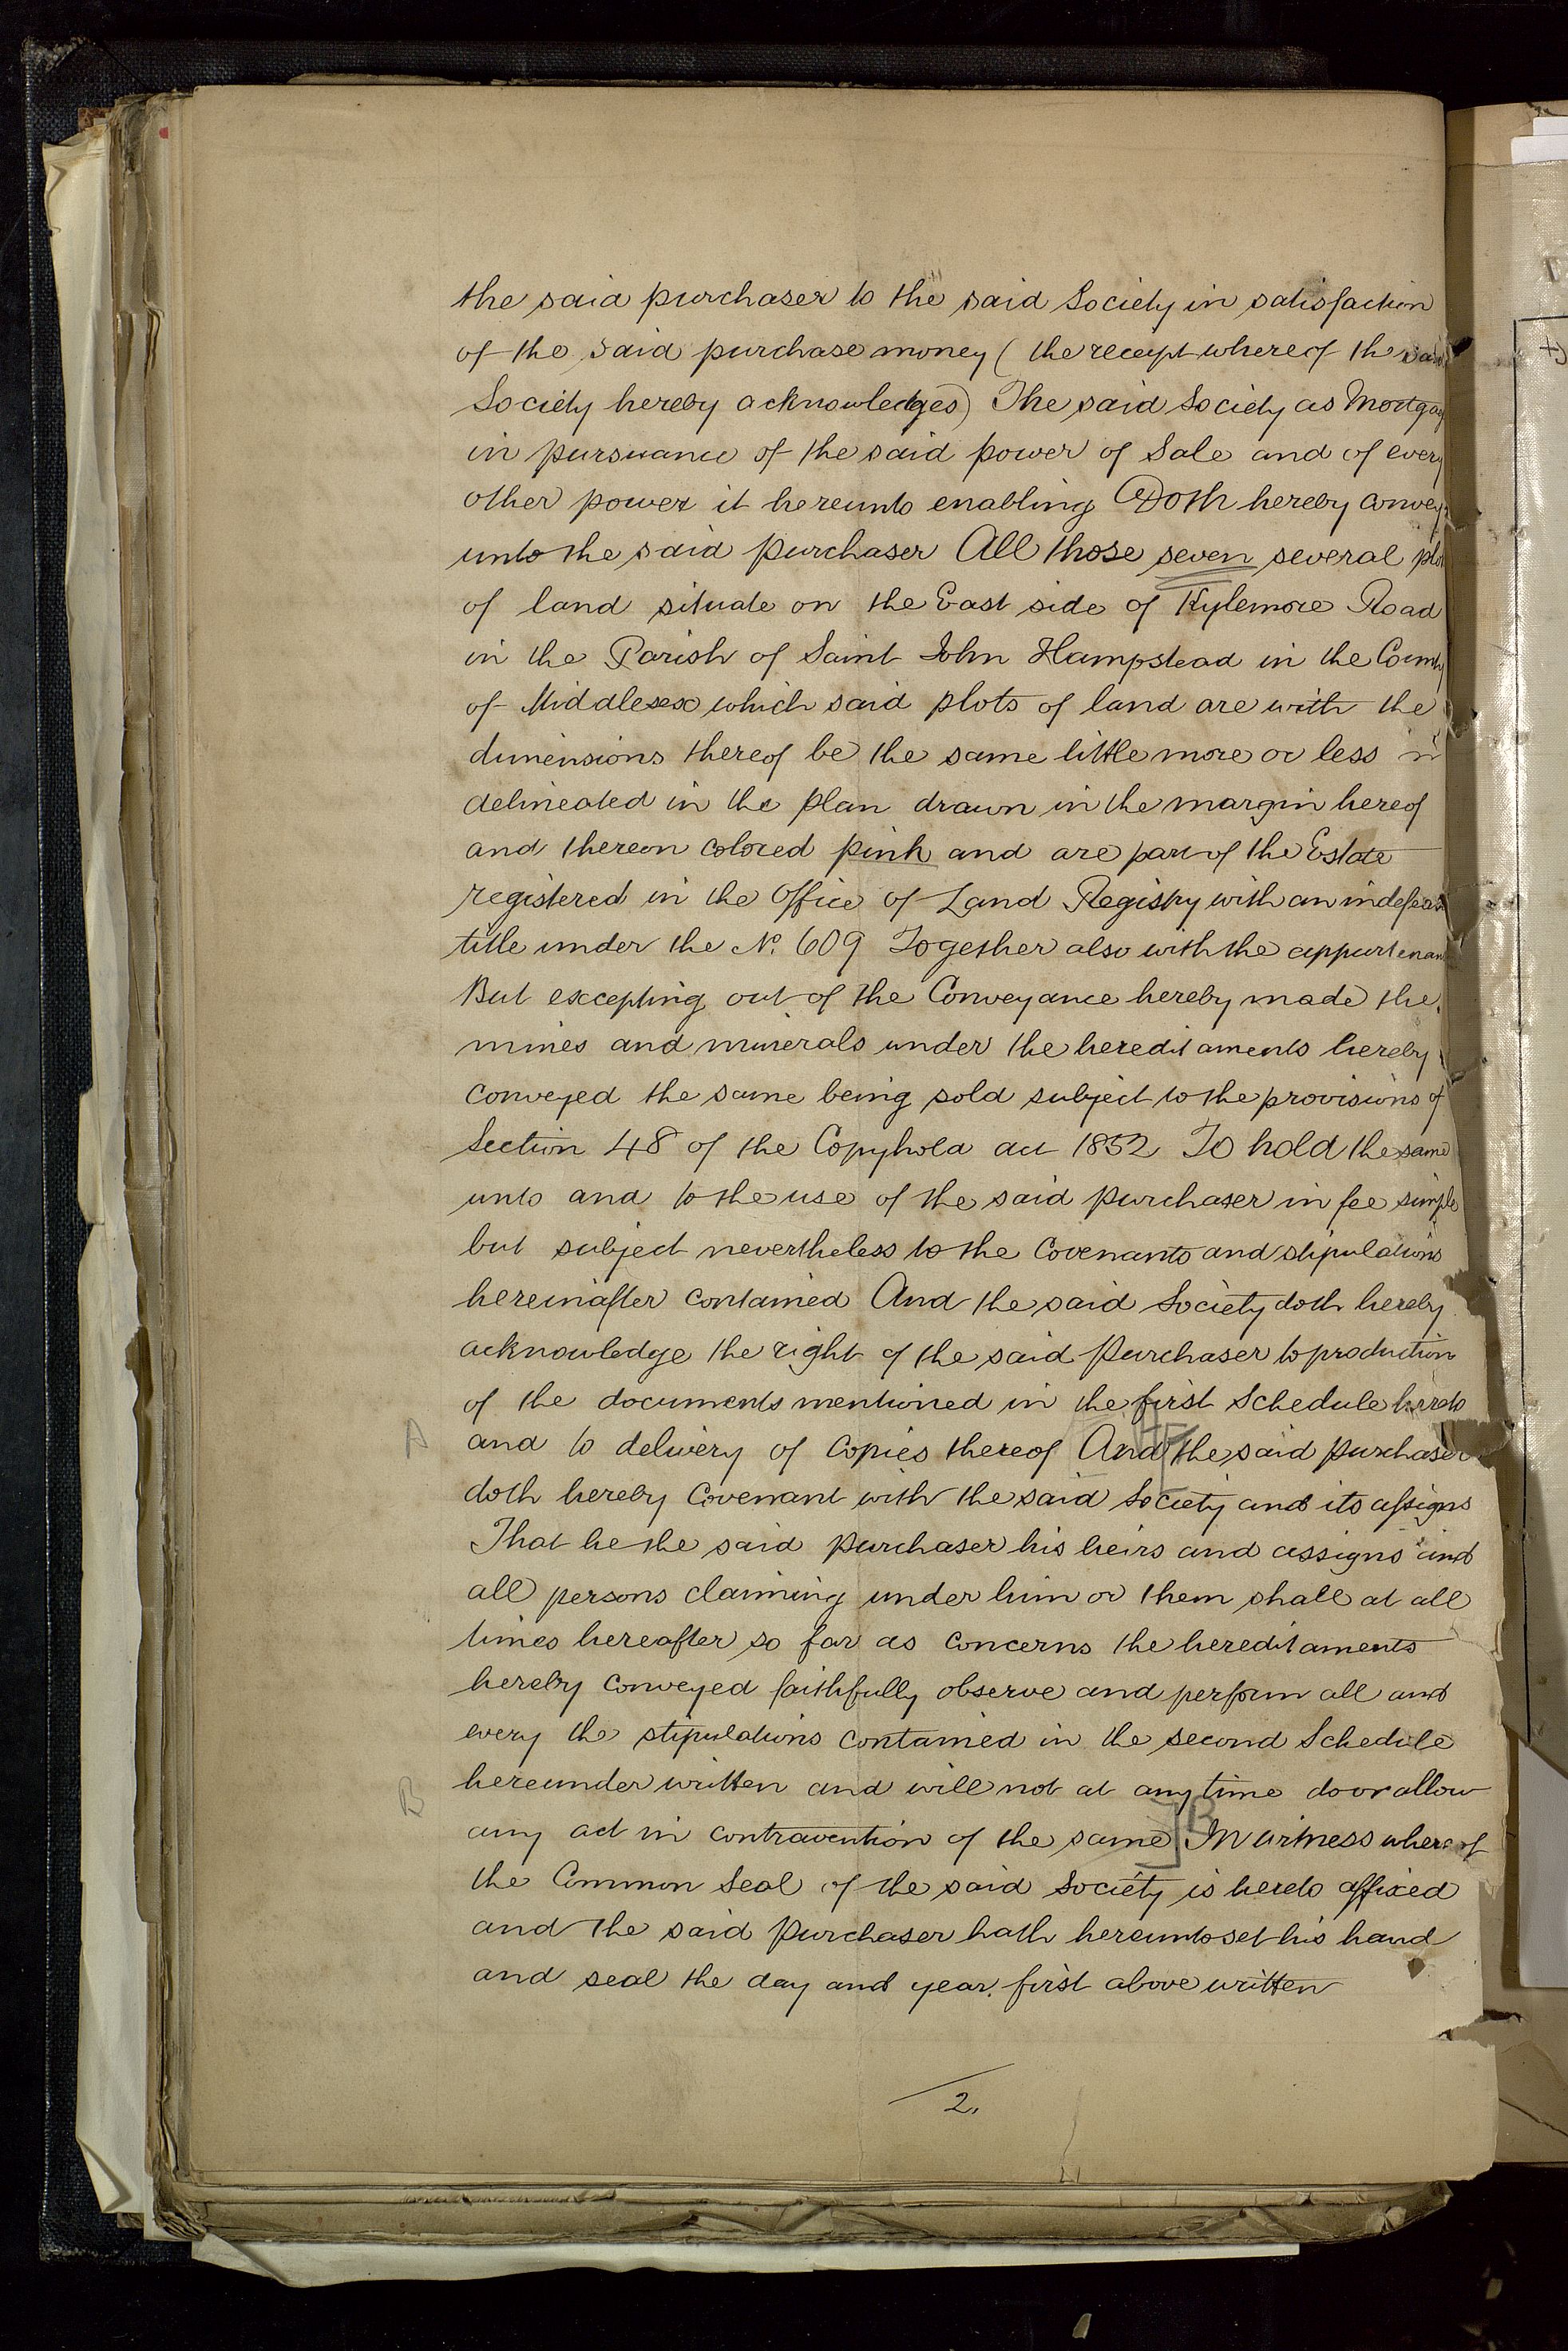 the said purchaser to the said Society in satisfaction
of the said purchase money (the receipt whereof the said
Society hereby acknowledges) The said Society as Mortgag
in pursuance of the said power of Sale and of every
other power it hereunto enabling Doth hereby convey
unto the said purchaser All those seven several plo
of land situate on the East side of Kylemore Road
in the Parish of Saint John Hampstead in the County
of Middlesex which said plots of land are with the
dimensions thereof be the same little more or less
delineated in the plan drawn in the margin hereof
and thereon colored pink and are part of the Estate
registered in the Office of Land Registry with an indefeas
title under the No. 609 Together also with the appurtenan
But excepting out of the Conveyance hereby made the
mines and minerals under the hereditaments hereby
conveyed the same being sold subject to the provisions of
Section 48 of the Copyhold act 1852 To hold the same
unto and to the use of the said purchaser in fee simple
but subject nevertheless to the Covenants and stipulations
hereinafter contained And the said Society doth hereby
acknowledge the right of the said Purchaser to production
of the documents mentioned in the first Schedule hereto
A and to delivery of Copies thereof And the said purchaser
doth hereby Covenant with the said Society and its assigns
That he the said purchaser his heirs and assigns and
all persons claiming under him or them shall at all
times hereafter so far as concerns the hereditaments
hereby conveyed faithfully observe and perform all and
every the stipulations contained in the second Schedule
B hereunder written and will not at any time do or allow
any act in contravention of the same] B In witness whereof
the Common Seal of the said Society is hereto affixed
and the said Purchaser hath hereunto set his hand
and seal the day and year first above written
2.